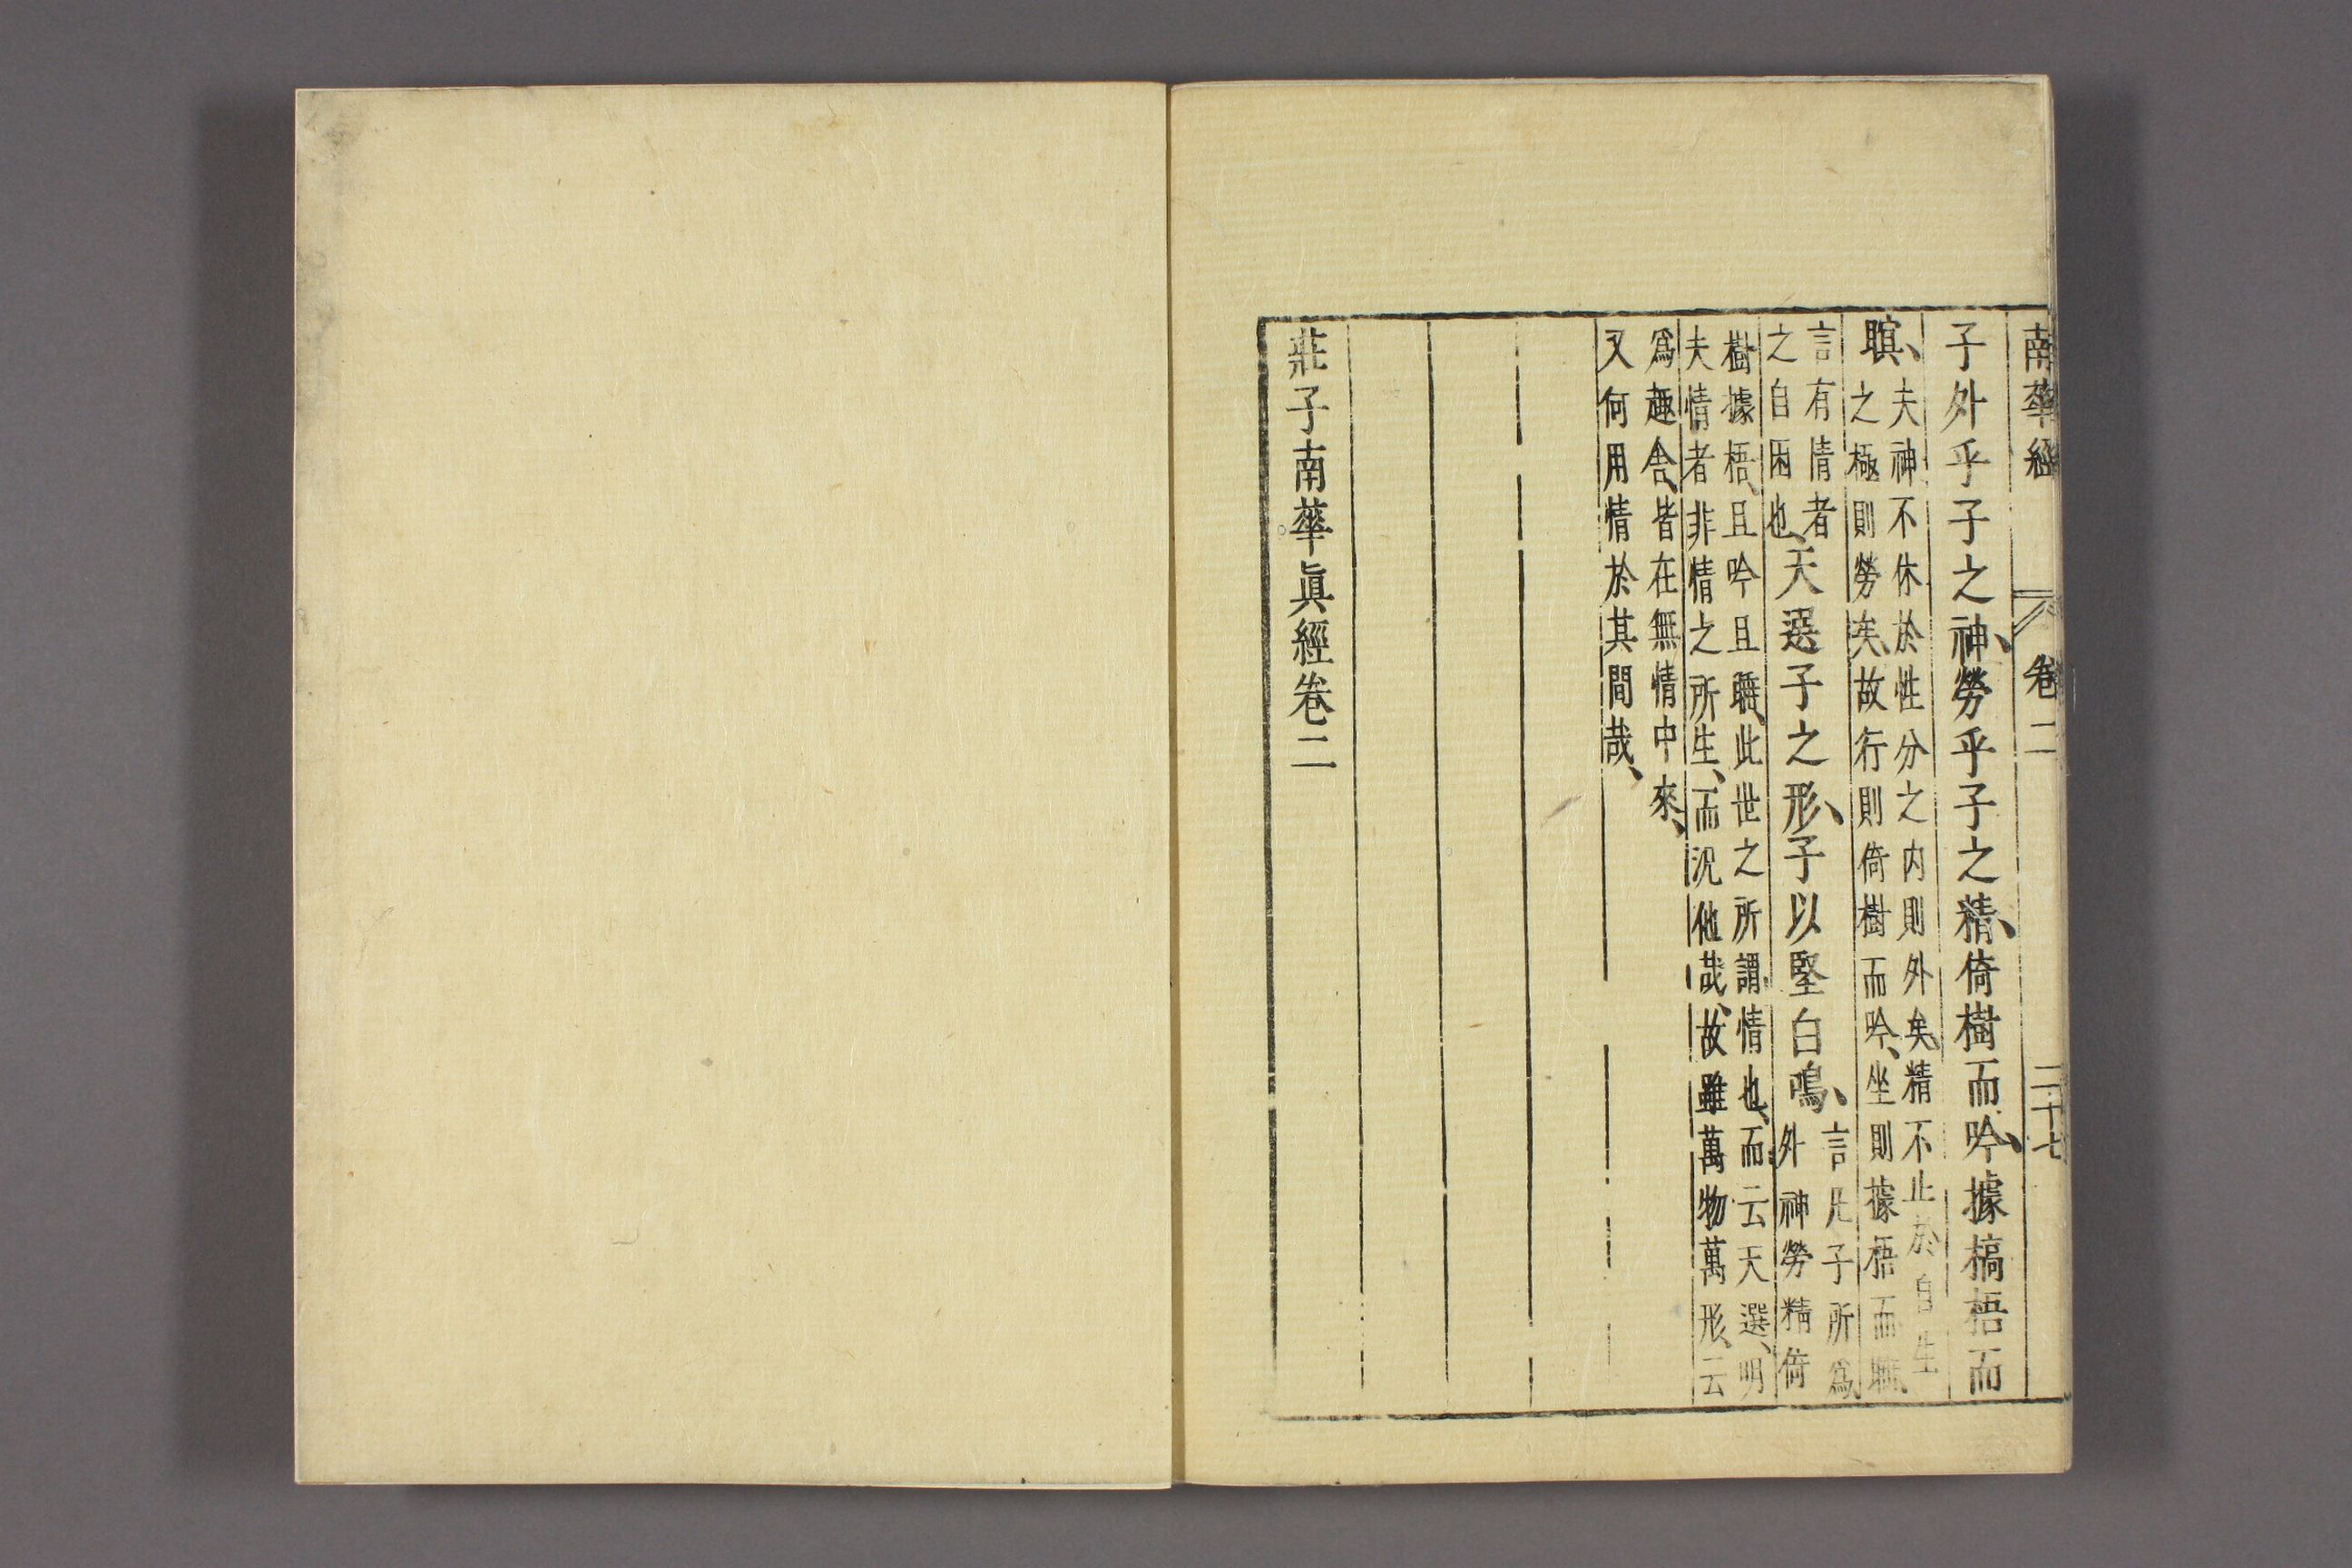 南華經 卷二 二十七
子外乎子之神、勞乎子之精、倚樹而吟、據槁梧而
瞑、
夫神不休於性分之内則外矣、精不止於自生
之極則勞矣、故行則倚樹而吟、坐則據梧而睡、
言有情者
之自困也、
天選子之形、子以堅白鳴、
言凡子所爲、
外神勞精倚
樹據梧、且吟且睡、此世之所謂情也、而云天選、明
夫情者非情之所生、而況他哉、故雖萬物萬形、云
爲趣舍、皆在無情中來、
又何用情於其間哉、
莊子南華眞經卷二